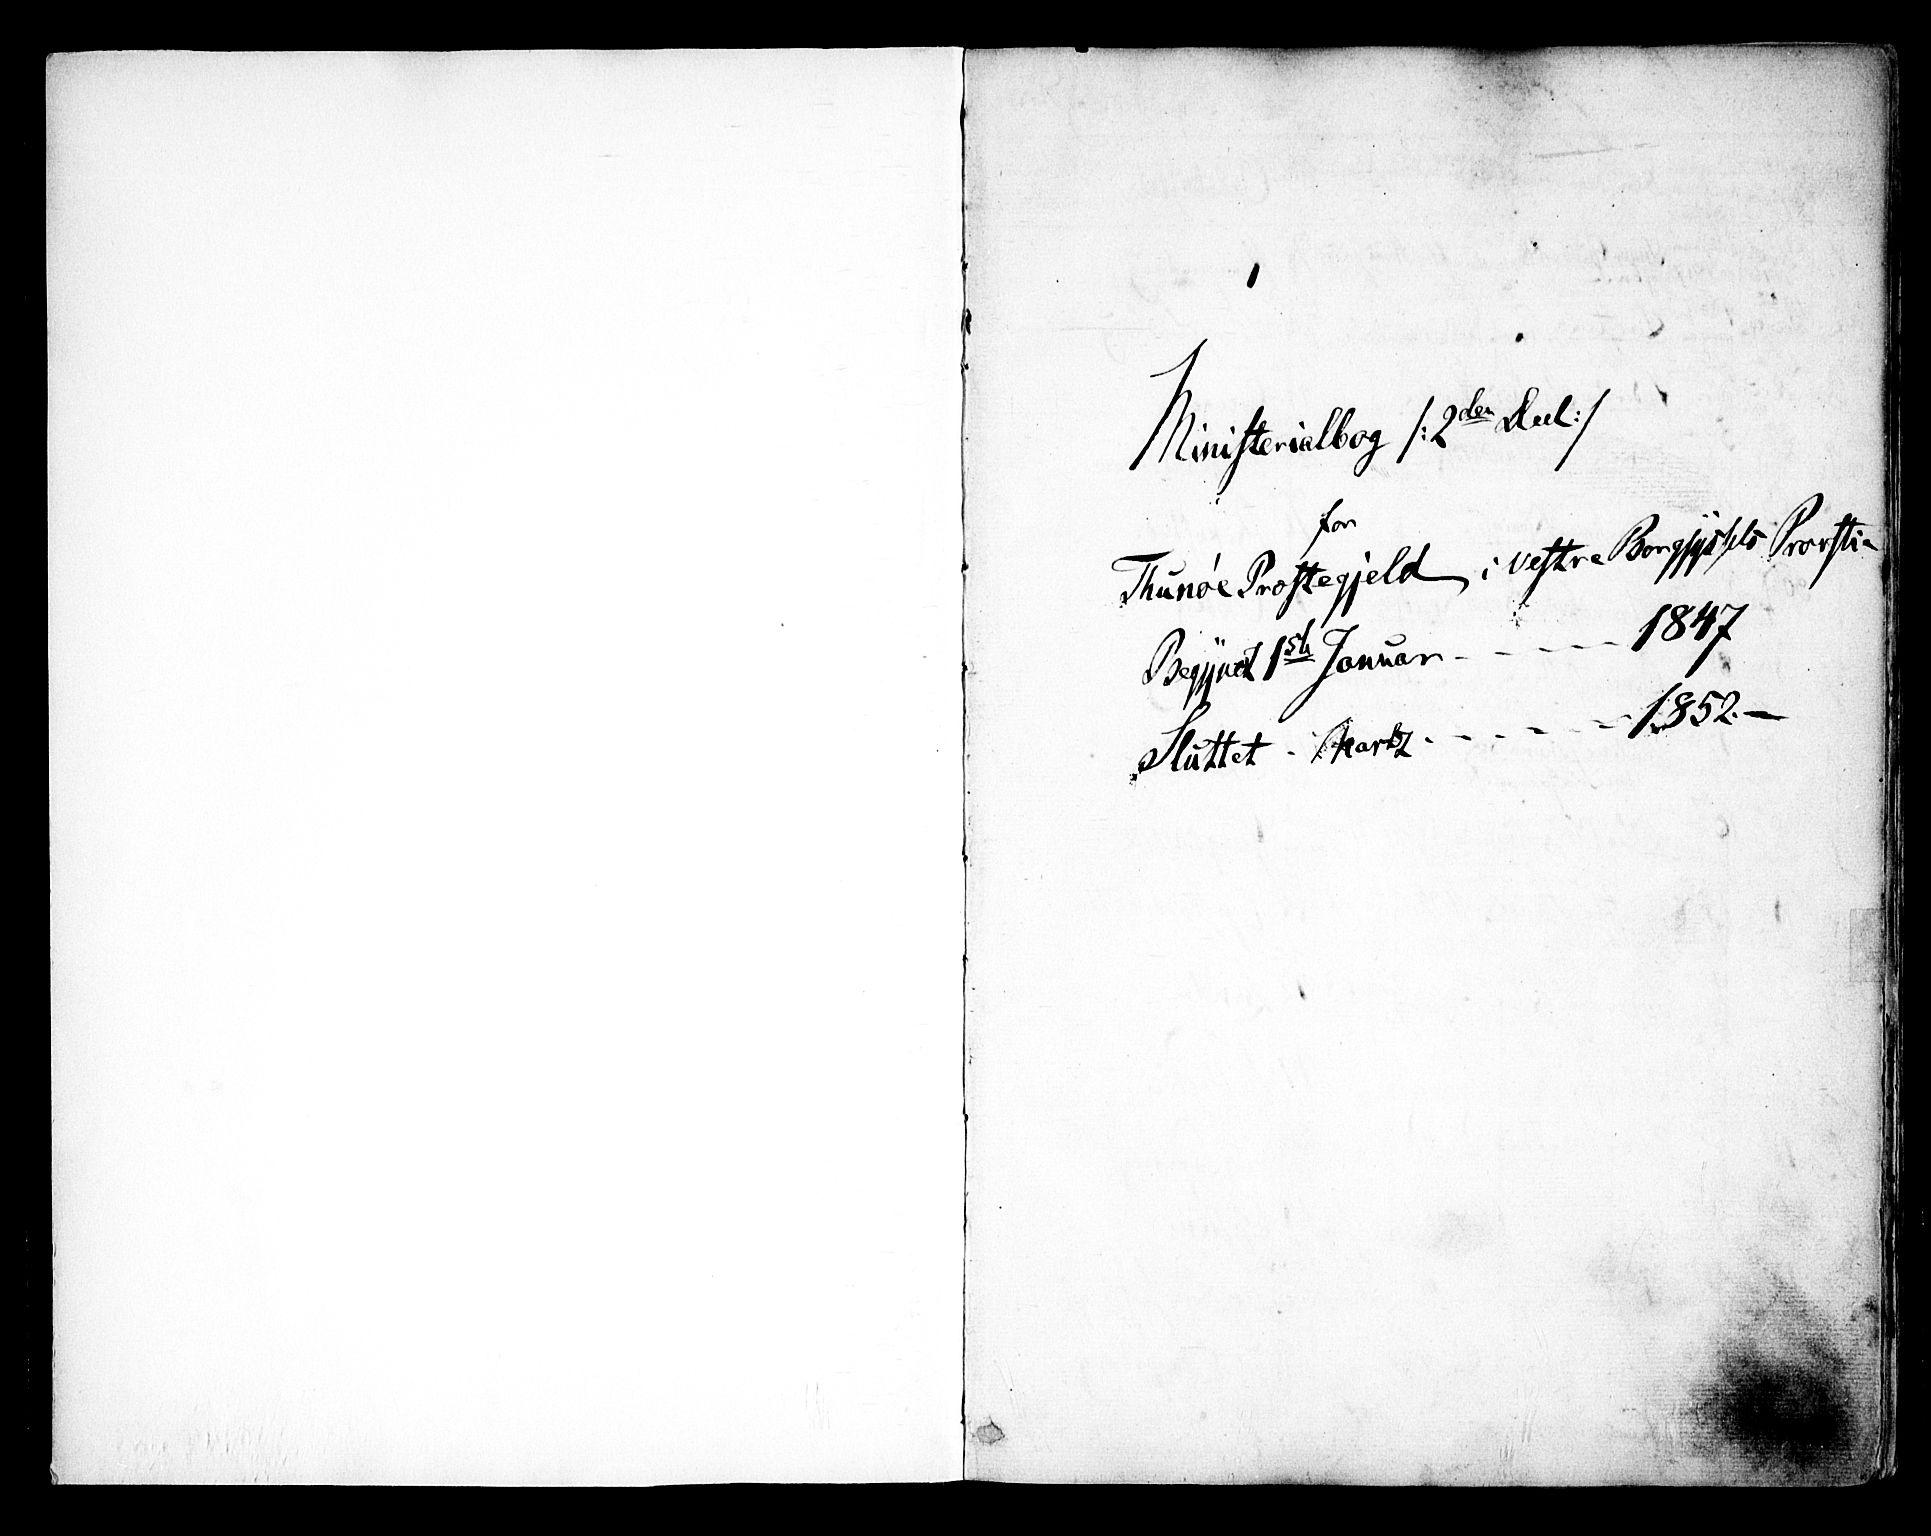 Ministerialbog /: 2den Deel :/
for
Thunöe Præstegjeld, i vestre Borgesyssels Provsti
Begÿndt 1ste Januar - - - - - 1847
Sluttet - Martz - - - - - - 1852. -